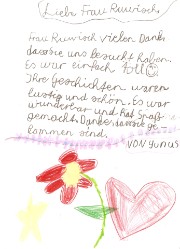 Liebe Frau Ruwisch
Frau Ruwisch vielen Dank,
dass sie uns besucht haben.
Es war einfach toll
Ihre Geschichten waren
lustig und schön. Es war
wunderbar und hat Spaß
gemacht. Danke, dass sie ge-
kommen sind.
VON YUNUS